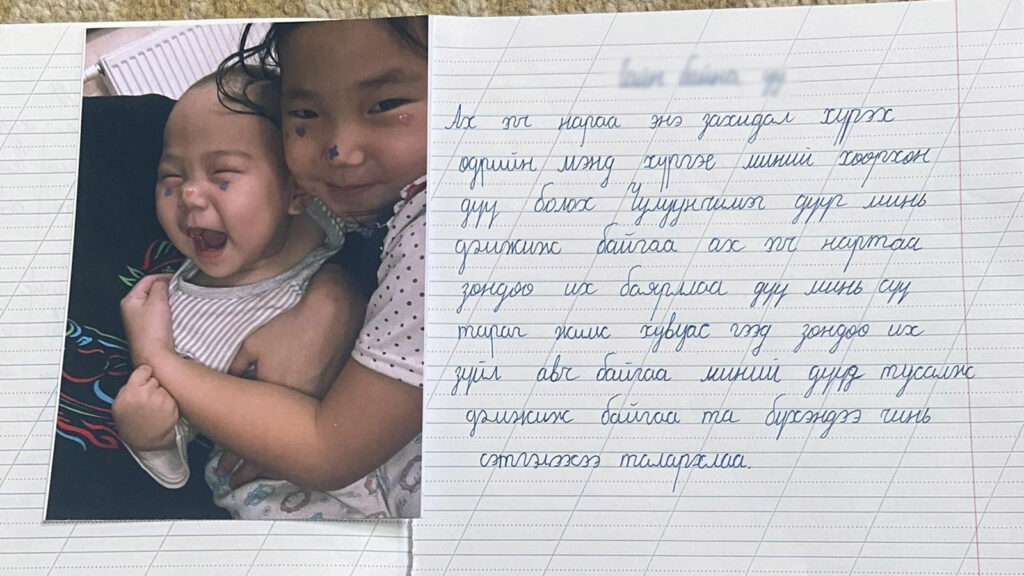 Ах эгч нараа энэ захидал хүрэх
өдрийн мэнд хүргэе миний хөөрхөн
дүү болох Чулуунчимэг дүүг минь
дэмжиж байгаа ах эгч нартаа
зөндөө их баярллаа дүү минь сүү
тараг жимс хувцас гээд зөндөө их
зүйл авч байгаа миний дүүд тусалж
дэмжиж байгаа та бүхэндээ чинь
сэтгэлээсээ талархлаа.